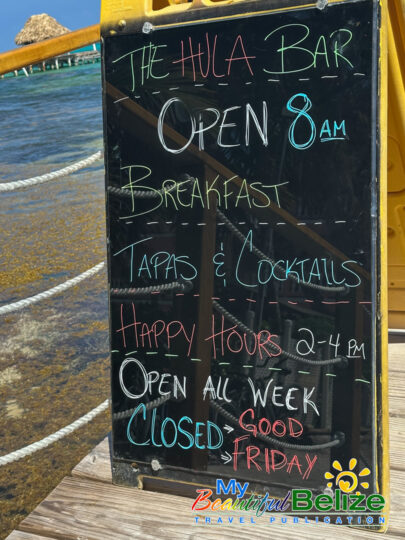 THE HULA BAR
OPEN 8AM
BREAKFAST
TAPAS & COCKTAILS
HAPPY HOURS 2-4 PM
OPEN ALL WEEK
CLOSED → GOOD
→ FRIDAY
My Beautiful Belize
TRAVEL PUBLISATION